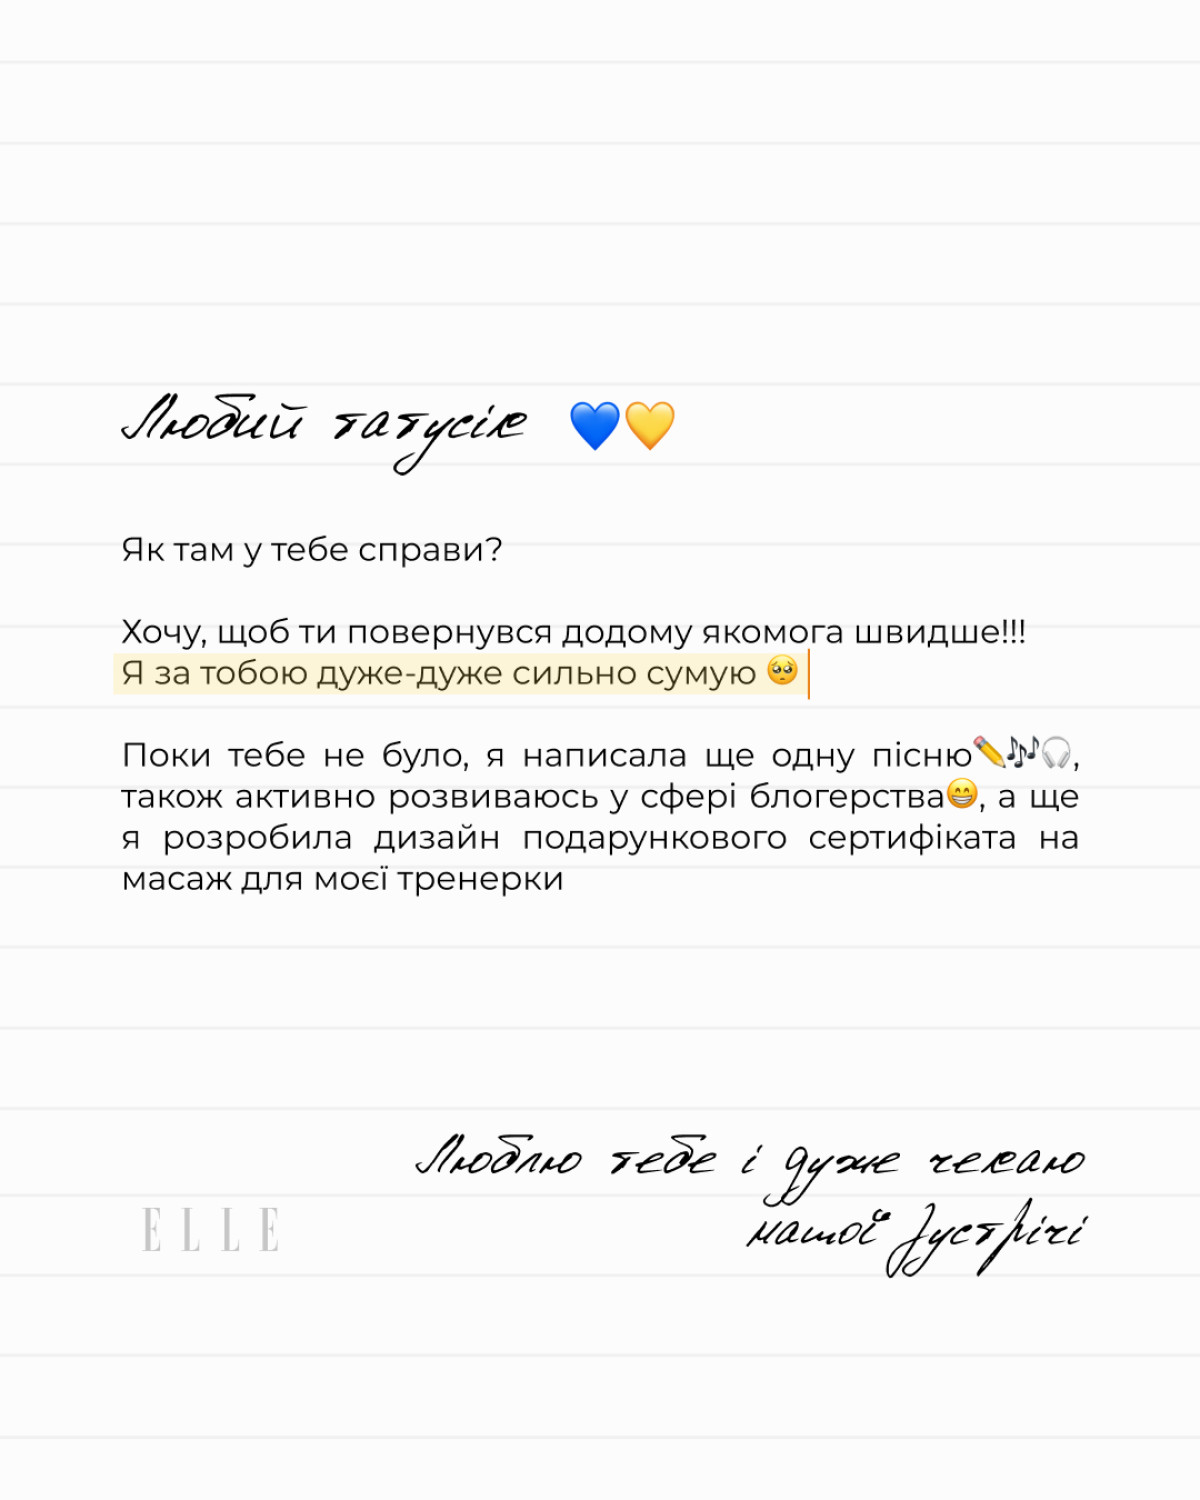 Любий татусік 💙💛
Як там у тебе справи?
Хочу, щоб ти повернувся додому якомога швидше!!!
Я за тобою дуже-дуже сильно сумую 🥺
Поки тебе не було, я написала ще одну пісню✏️🎶🎧,
також активно розвиваюсь у сфері блогерства😁, а ще
я розробила дизайн подарункового сертифіката на
масаж для моєї тренерки
Люблю тебе і дуже чекаю
нашої зустрічі
ELLE